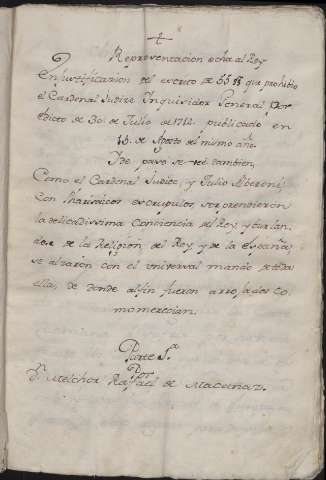 Representacion echa al Rey
En justificacion del escrito de 55 §§ que prohibio
el Cardenal Judice Inquisidor General, Por
Edicto de 30. de Julio de 1714. publicado en
15. de Agosto del mismo año.
Y de paso se vee tambien,
Como el Cardenal Judice, y Julio Alberoni,
con Pharisaicos escrupulos sorprendieron
la delicadissima Conciencia del Rey, y burlan,
dose de la Religion, del Rey, y de la España,
se alzaron con el universal mando de toda
ella, de donde al fin fueron arrojados co,
mo merecian.
Parte 1.ª
Por
D. Melchor Rafael de Macanaz.